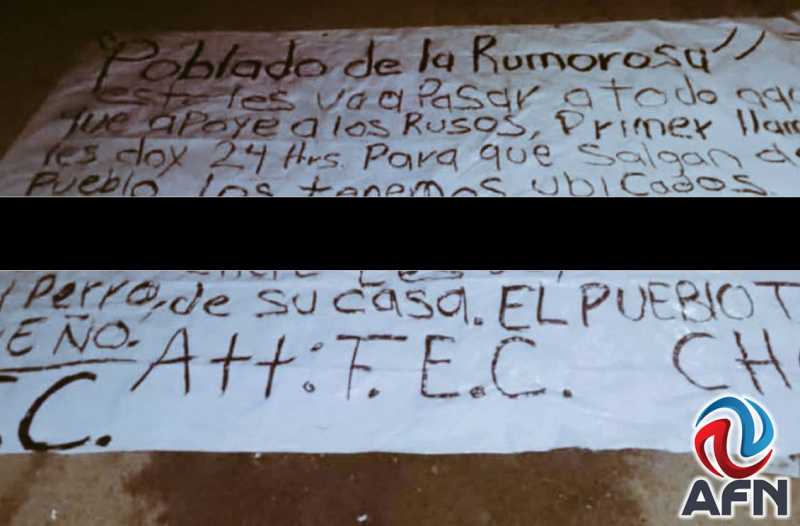 "Poblado de la Rumorosa"
esto les va a Pasar a todo aqu
que apoye a los Rusos, Primer llam
les doy 24 Hrs. Para que Salgan d
Pueblo los tenemos ubicados.
Perro, de su casa. EL PUEBLO T
EÑO. Att: F.E.C. CH
.C.
AFN